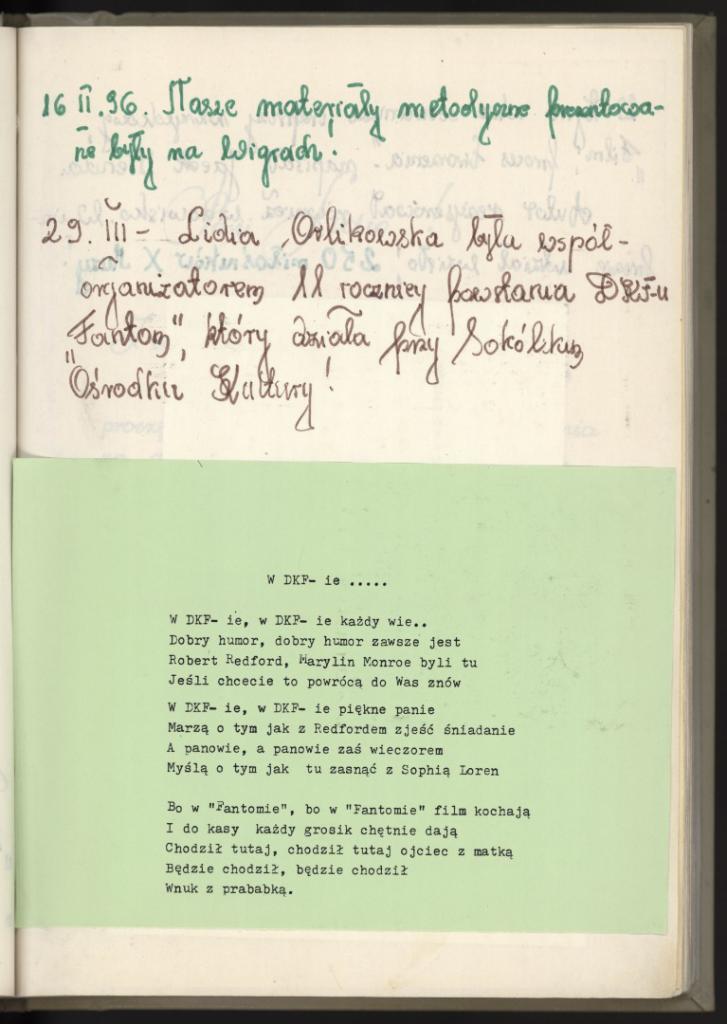 16 II.96. Nasze materiały metodyczne prezentowa-
ne były na Wigrach.
29. III - Lidia Orlikowska była współ-
organizatorem 11 rocznicy powstania DKF-u
"Fantom", który działa przy Sokólskim
Ośrodku Kultury!
W DKF- ie .....
W DKF- ie, w DKF- ie każdy wie..
Dobry humor, dobry humor zawsze jest
Robert Redford, Marylin Monroe byli tu
Jeśli chcecie to powrócą do Was znów
W DKF- ie, w DKF- ie piękne panie
Marzą o tym jak z Redfordem zjeść śniadanie
A panowie, a panowie zaś wieczorem
Myślą o tym jak tu zasnąć z Sophią Loren
Bo w "Fantomie", bo w "Fantomie" film kochają
I do kasy każdy grosik chętnie dają
Chodził tutaj, chodził tutaj ojciec z matką
Będzie chodził, będzie chodził
Wnuk z prababką.